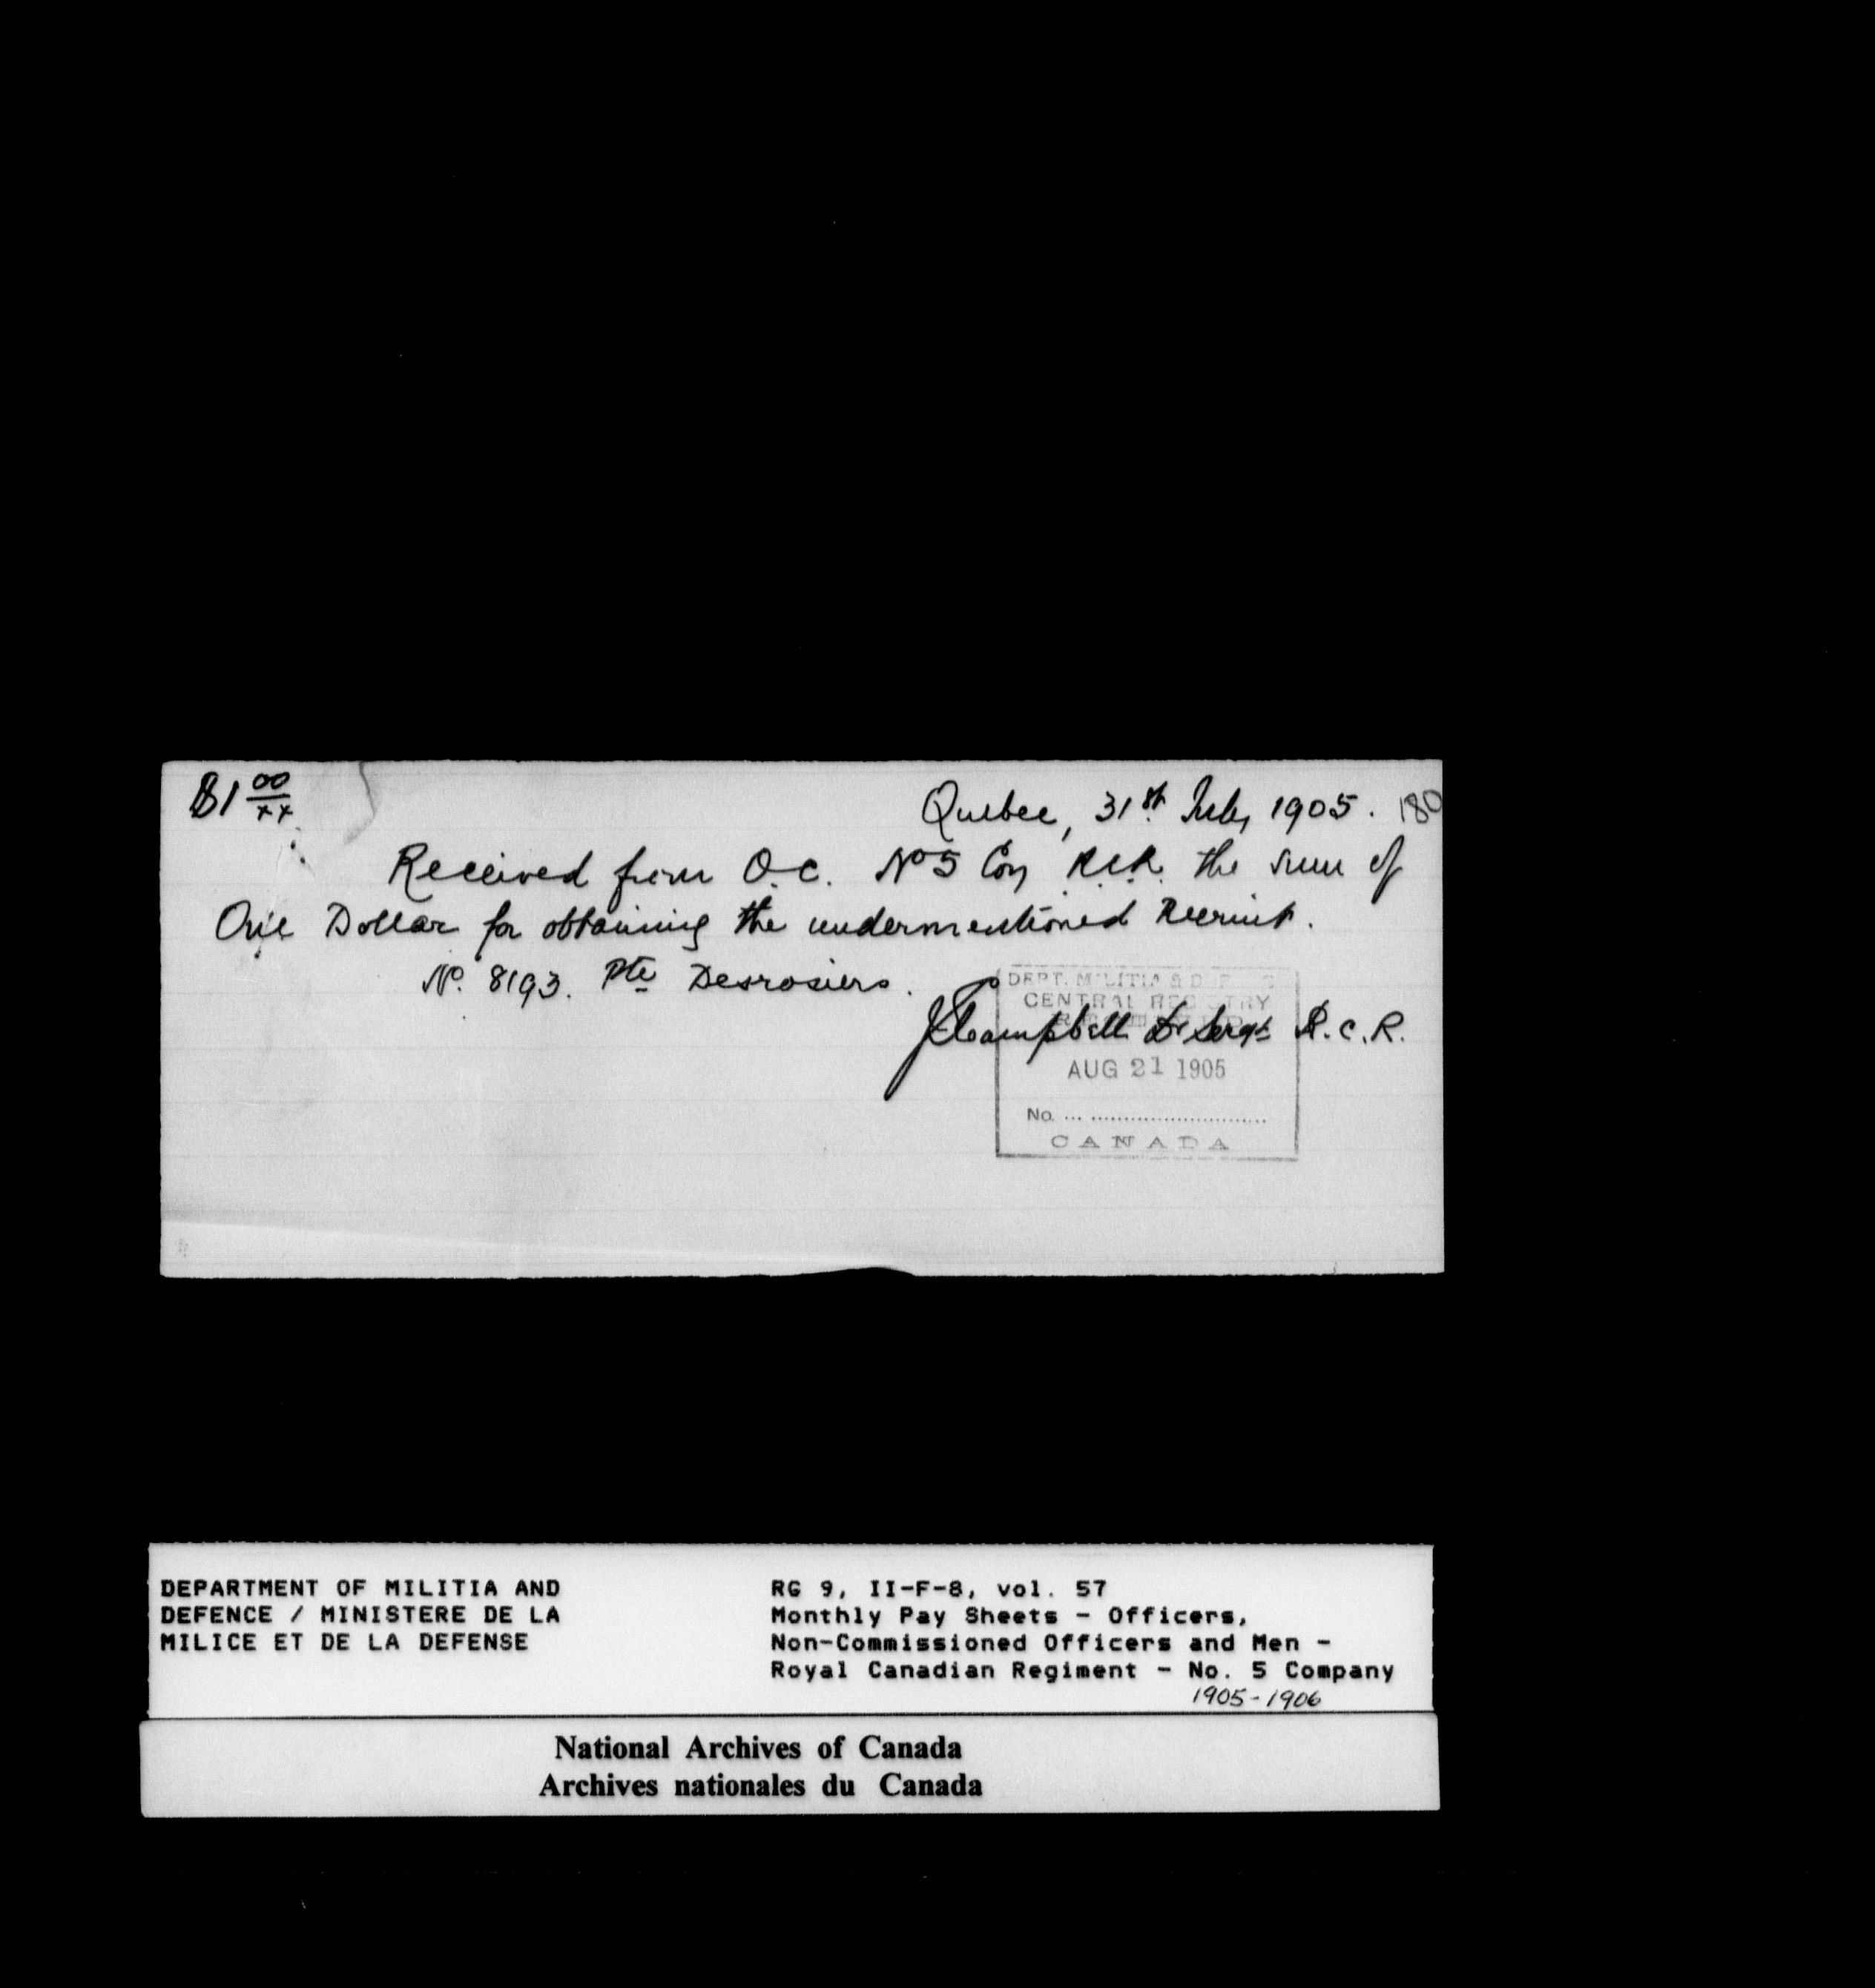 $1 00/xx
Quebec, 31st July 1905. 180
Received from O.C. No 5 Coy R.C.R. the sum of
One Dollar for obtaining the undermentioned Recruit.
No. 8193. Pte Desrosiers.
Campbell Sergt R.C.R.
DEPT. MILITIA & D
CENTRAL REGISTRY
AUG 21 1905
No. ..............................
CANADA
DEPARTMENT OF MILITIA AND
DEFENCE / MINISTERE DE LA
MILICE ET DE LA DEFENSE
RG 9, II-F-8, vol. 57
Monthly Pay Sheets - Officers,
Non-Commissioned Officers and Men -
Royal Canadian Regiment - No. 5 Company
1905-1906
National Archives of Canada
Archives nationales du Canada